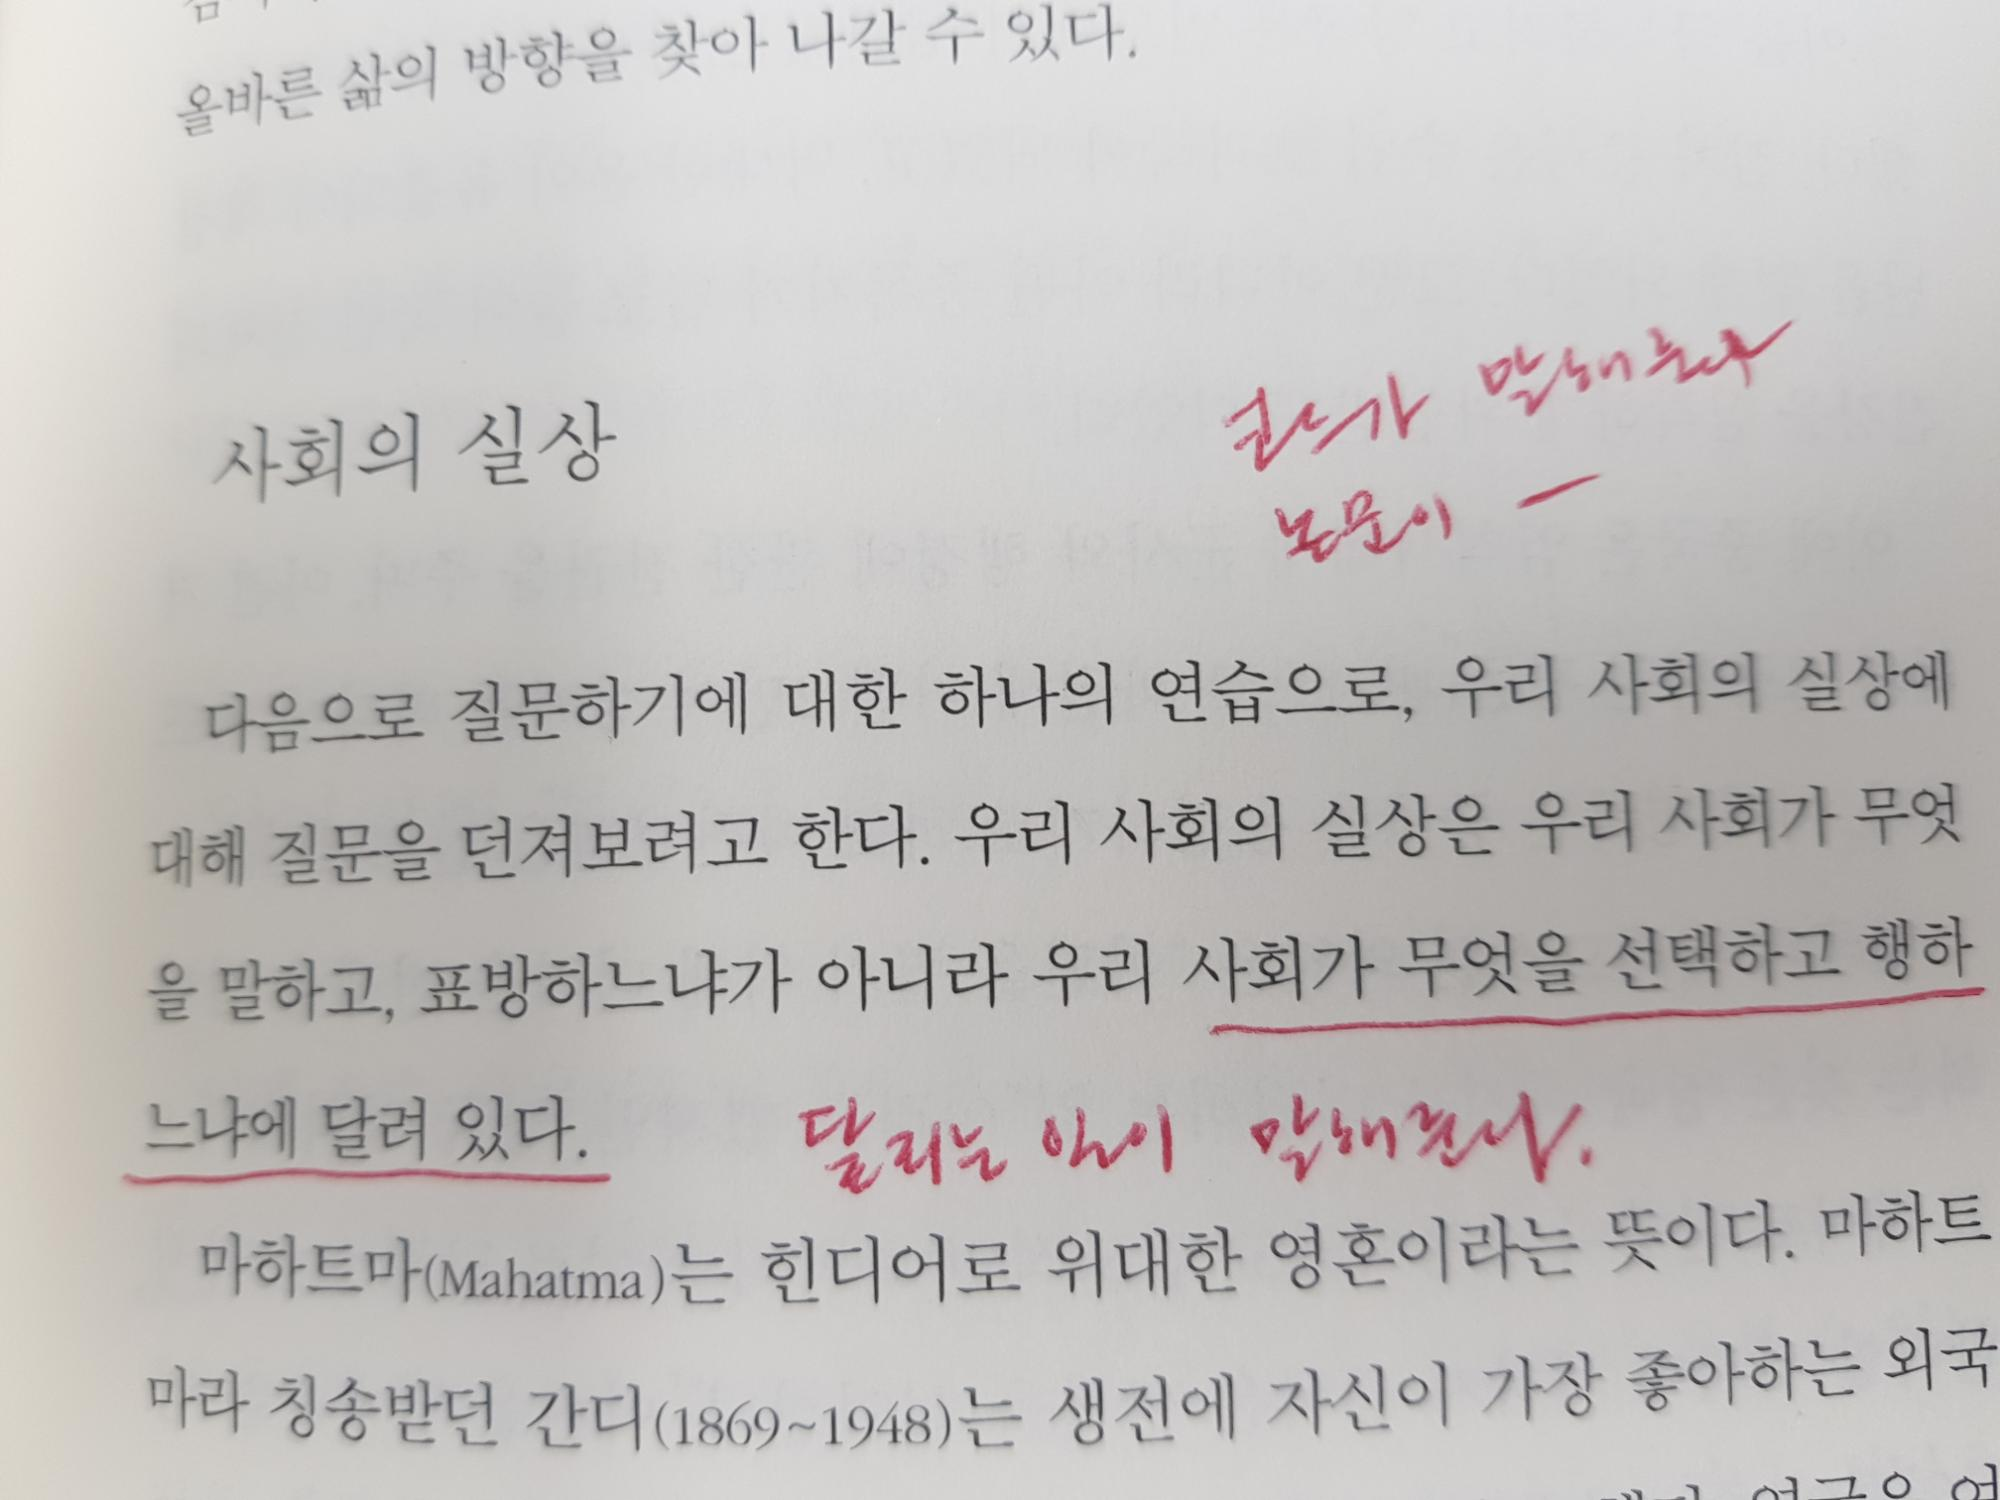 올바른 삶의 방향을 찾아 나갈 수 있다.
말해준다
사회의 실상
논문이 —
다음으로 질문하기에 대한 하나의 연습으로, 우리 사회의 실상에
대해 질문을 던져보려고 한다. 우리 사회의 실상은 우리 사회가 무엇
을 말하고, 표방하느냐가 아니라 우리 사회가 무엇을 선택하고 행하
느냐에 달려 있다.
달리는 말해준다.
마하트마(Mahatma)는 힌디어로 위대한 영혼이라는 뜻이다. 마하트
마라 칭송받던 간디(1869~1948)는 생전에 자신이 가장 좋아하는 외국